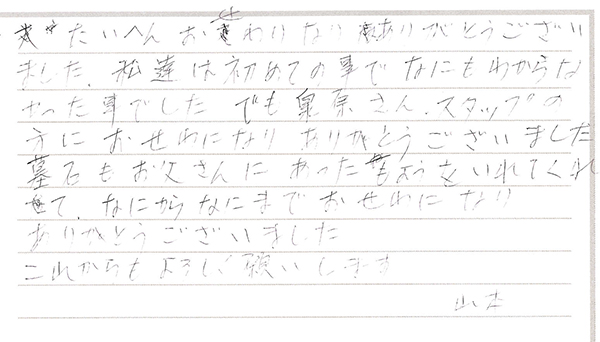 たいへん おせわになり ありがとうござい
ました。私達は初めての事で なにもわからな
かった事でした でも泉原さん、スタッフの
方に おせわになり ありがとうございました
墓石もお父さんに あった もようをいれてくれ
て、なにからなにまで おせわになり
ありがとうございました
これからもよろしく願いします
山本